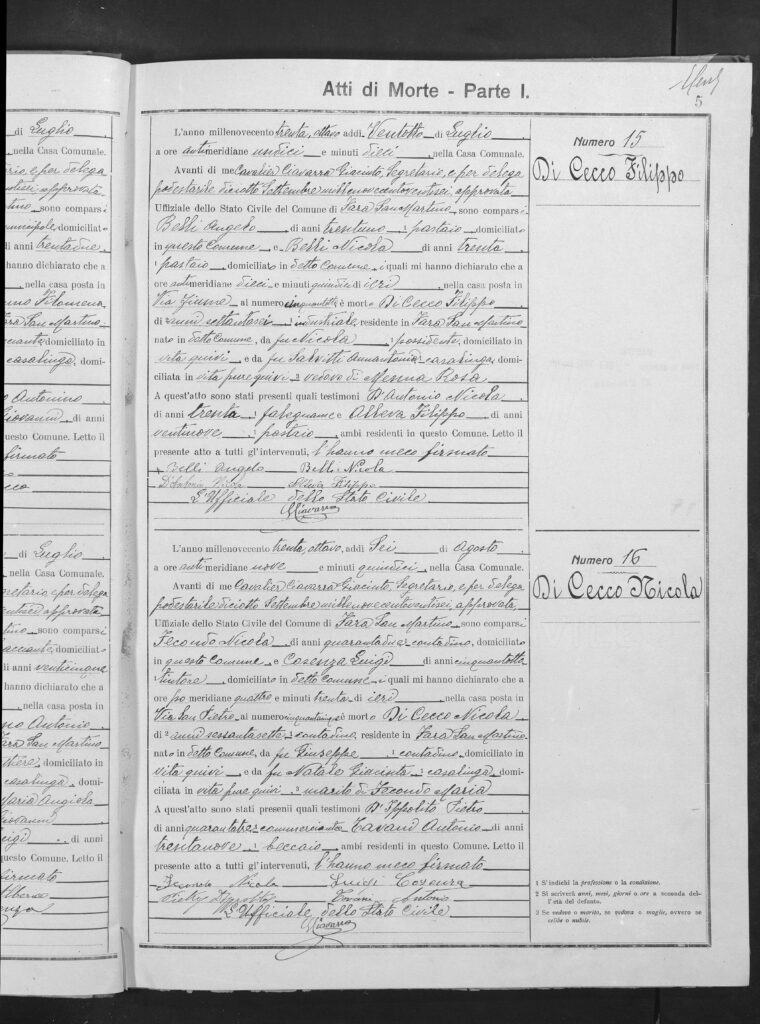 di Luglio
, nella Casa Comunale.
di anni trentadue
hanno dichiarato che a
, nella casa posta in
Filomena
Fara San Martino
domiciliato in
casalinga, domi-
Antonino
Giovanni di anni
questo Comune. Letto il
firmato
di Luglio
, nella Casa Comunale.
sono comparsi
, domiciliato
di anni venticinque
hanno dichiarato che a
nella casa posta in
Antonio
Fara San Martino
domiciliato in
casalinga, domi-
Maria Angiola
Giovanni
Luigi di anni
questo Comune. Letto il
firmato
Atti di Morte - Parte I.
5
L'anno millenovecento trenta, ottavo addì Ventotto di Luglio
a ore antimeridiane undici e minuti dieci, nella Casa Comunale.
Avanti di me Cavalier Ciavarra Giacinto, Segretario, e per delega
podestarile diciotto Settembre millenovecentoventisei, approvata
Uffiziale dello Stato Civile del Comune di Fara San Martino sono comparsi
Belli Angelo di anni trentuno pastaio domiciliato
in questo Comune e Belli Nicola di anni trenta
pastaio domiciliato in detto Comune i quali mi hanno dichiarato che a
ore antimeridiane dieci e minuti quindici di ieri, nella casa posta in
Via Fiume al numero cinquantotto è morto Di Cecco Filippo
di anni settantasei industriale, residente in Fara San Martino
nato in detto Comune, da fu Nicola possidente, domiciliato in
vita quivi e da fu Salvitti Amantonia casalinga, domi-
ciliata in vita pure quivi vedovo di Menna Rosa
A quest'atto sono stati presenti quali testimoni D'Antonio Nicola
di anni trenta falegname e Alleva Filippo di anni
ventinove pastaio, ambi residenti in questo Comune. Letto il
presente atto a tutti gl'intervenuti, l'hanno meco firmato
Belli Angelo Belli Nicola
D'Antonio Nicola Alleva Filippo
L'Uffiziale dello Stato Civile
GCiavarra
Numero 15
Di Cecco Filippo
L'anno millenovecento trenta, ottavo, addì Sei di Agosto
a ore antimeridiane nove e minuti quindici, nella Casa Comunale.
Avanti di me Cavalier Ciavarra Giacinto, Segretario, e per delega
podestarile diciotto Settembre millenovecentoventisei, approvata,
Uffiziale dello Stato Civile del Comune di Fara San Martino sono comparsi
Tecondo Nicola di anni quarantadue contadino, domiciliato
in questo Comune e Cosenza Luigi di anni cinquantotto
tintore, domiciliato in detto Comune i quali mi hanno dichiarato che a
ore pomeridiane quattro e minuti trenta di ieri, nella casa posta in
Via San Pietro al numero è morto Di Cecco Nicola
di anni sessantasette contadino, residente in Fara San Martino
nato in detto Comune, da fu Giuseppe contadino, domiciliato in
vita quivi e da fu Natale Giacinta casalinga, domi-
ciliata in vita pure quivi marito di Tecondo Maria
A quest'atto sono stati presenti quali testimoni D'Ippolito Pietro
di anni quarantatre commerciante e Tavani Antonio di anni
trentanove beccaio ambi residenti in questo Comune. Letto il
presente atto a tutti gl'intervenuti, l'hanno meco firmato
Tecondo Nicola Luigi Cosenza
Pietro D'Ippolito Tavani Antonio
L'Uffiziale dello Stato Civile
GCiavarra
Numero 16
Di Cecco Nicola
1 S'indichi la professione o la condizione.
2 Si scriverà anni, mesi, giorni o ore a seconda del-
l'età del defunto.
3 Se vedovo o marito, se vedova o moglie, ovvero se
celibe o nubile.